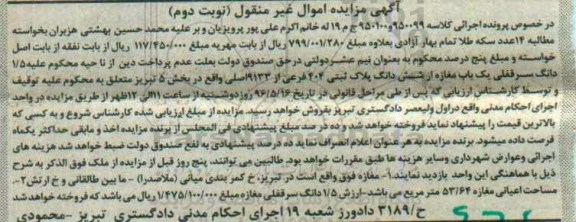 آگهی مزایده اموال غیر منقول (نوبت دوم)
در خصوص پرونده اجرائی کلاسه ۹۵۰۰۹۹و۹۵۰۱۰۰ج م۱۹ له خانم اکرم علی پور پرویزیان و بر علیه محمد حسین بهشتی هزبران بخواسته
مطالبه ۱۴عدد سکه طلا تمام بهار آزادی بعلاوه مبلغ ۷۹۹/۰۰۱/۲۸۰ ریال از بابت مهریه مبلغ ۱۱۷/۴۵۰/۰۰۰ ریال از بابت نفقه از بابت اصل
خواسته و مبلغ پنج درصد محکوم به بعنوان نیم عشر دولتی در حق صندوق دولت بعلت عدم پرداخت دین از نا حیه محکوم علیه۱/۵
دانگ سرقفلی یک باب مغازه از شش دانگ پلاک ثبتی ۲۰۲ فرعی از ۹۱۳۳اصلی واقع در بخش ۵ تبریز متعلق به محکوم علیه توقیف
و توسط کارشناس ارزیابی که پس از طی مراحل قانونی در تاریخ ۹۶/۵/۱۶ روز دوشنبه از ساعت ۱۱الی ۱۲ظهر از طریق مزایده در واحد
اجرای احکام مدنی واقع در اول ولیعصر دادگستری تبریز بفروش خواهد رسید. مزایده از مبلغ ارزیابی شده کارشناس شروع و به کسی که
بالاترین قیمت را پیشنهاد نماید فروخته خواهد شد و ده درصد مبلغ پیشنهادی فی المجلس از برنده مزایده اخذ و مابقی حداکثر یکماه
فرصت داده میشود. برنده مزایده به هر عنوان اعلام انصراف نماید ده درصد پیشنهادی به نفع صندوق دولت ضبط خواهد شد هزینه های
اجرائی وعوارض شهرداری وسایر هزینه ها طبق مقررات خواهد بود. طالبین می توانند، پنج روز قبل از مزایده از ملک فوق الذکر به شرح
ذیل با هماهنگی این واحد بازدید نمایند: ۱- مغازه فوق واقع است در تبریز، خ کمر بندی میانی (ملاصدرا) – ما بین طالقانی و خ ارتش ۲-
مساحت اعیانی مغازه ۵۳/۶۴ متر مربع می باشد-ارزش ۱/۵ دانگ سرقفلی مغازه مبلغ ۱/۴۷۵/۱۰۰/۰۰۰ ریال می باشد که فروخته خواهد شد
ح/۳۱۸۹ دادورز شعبه ۱۹ اجرای احکام مدنی دادگستری تبریز –محمودی